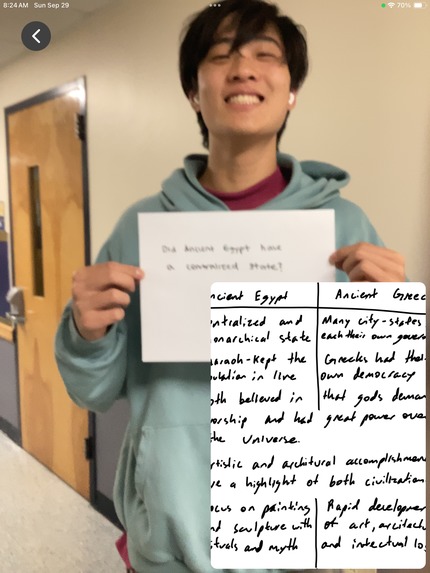 8:24 AM Sun Sep 29
70%
Did Ancient Egypt have
a centralized state?
ncient Egypt
Ancient Greec
ntralized and
onarchical state
araoh-Kept the
ulation in live
oth believed in
orship and had
he Universe.
Many city-states
each their own govern
Greeks had thei
own democracy
that gods deman
great power ove
rtistic and architural accomplishmen
re a highlight of both civilization
ocus on painting
nd sculpture with
ituals and myth
Rapid developmen
of art, arcitect
and intectual lo